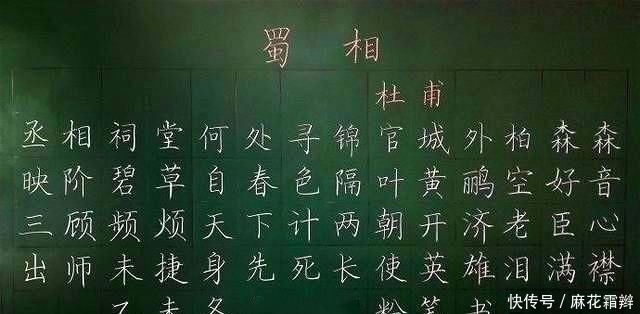 蜀相
杜甫
丞相祠堂何处寻锦官城外柏森森
映阶碧草自春色隔叶黄鹂空好音
三顾频烦天下计两朝开济老臣心
出师未捷身先死长使英雄泪满襟
乙未冬 粉笔书
快传号 / 麻花霜辫